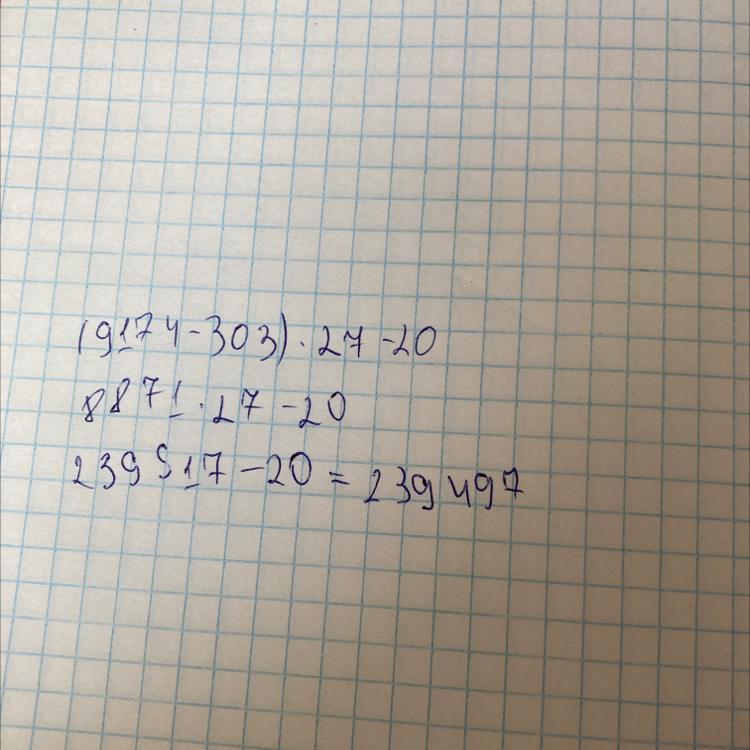 (9174-303)·27-20
8871·27-20
239517-20=239497